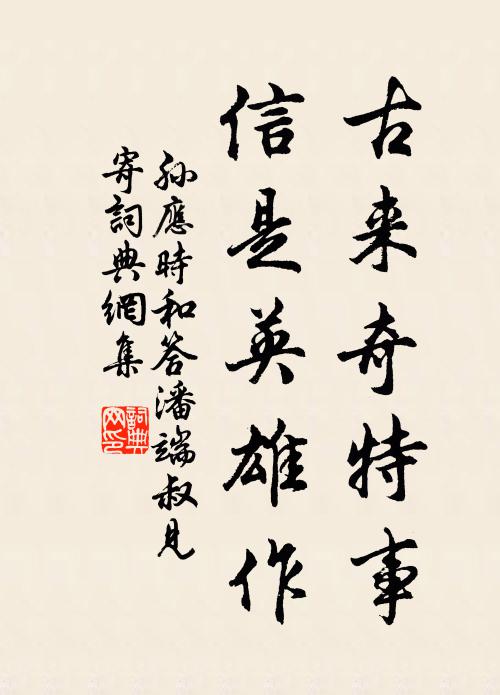 古来奇特事
信是英雄作
孙應時和答潘端叔見
寄詞典網集
詞典
网印